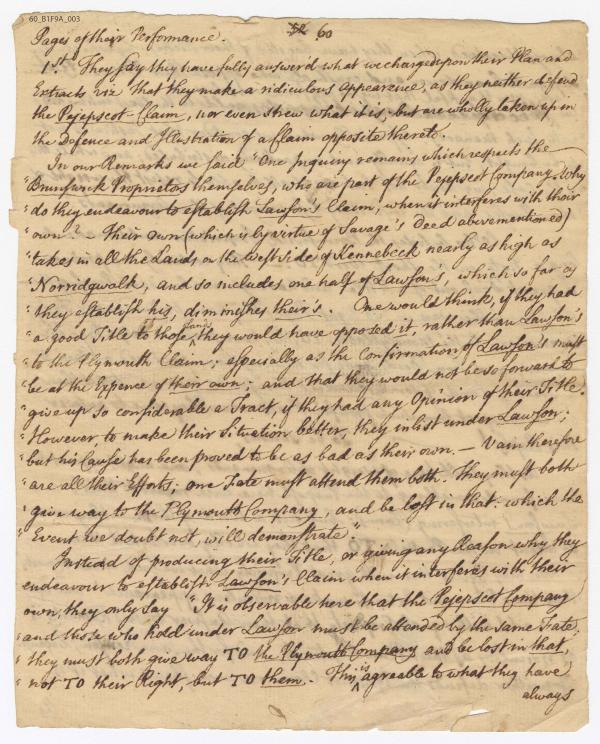 60_B1F9A_003
52 60
Pages of their Performance.
1st. They say they have fully answer'd what we charged upon their Plan and
Extracts viz That they make a ridiculous appearance, as they neither defend
the Pejepscot-Claim, nor even shew what it is; but are wholly taken up in
the Defence and Illustration of a Claim opposite thereto.
In our Remarks we said "One Inquiry remains which respects the
"Brunswick Proprietors themselves, who are part of the Pejepscot Company. Why
"do they endeavour to establish Lawson's Claim, when it interferes with their
"own? - Their own (which is by virtue of Savage's Deed abovementioned)
"takes in all the Lands on the West side of Kennebeck nearly as high as
"Norridgwalk, and so includes one half of Lawson's, which so far as
"they establish his, diminishes their's. One would think, if they had
"a good Title to those Lands, they would have opposed it, rather than Lawson's
"to the Plymouth Claim; especially as the Confirmation of Lawson's must
"be at the Expence of their own; and that they would not be so forward to
"give up so considerable a Tract, if they had any Opinion of their Title.
"However, to make their Situation better, they inlist under Lawson;
"but his Cause has been proved to be as bad as their own. - Vain therefore
"are all their Efforts; one Fate must attend them both. They must both
"give way to the Plymouth Company, and be lost in that: which the
"Event we doubt not, will demonstrate".
Instead of producing their Title, or giving any Reason why they
endeavour to establish Lawson's Claim when it interferes with their
own, they only say "It is observable here that the Pejepscot Company
"and those who hold under Lawson must be attended by the same Fate;
"they must both give way TO the Plymouth Company and be lost in that,
"not TO their Right, but TO them. This is agreable to what they have
always